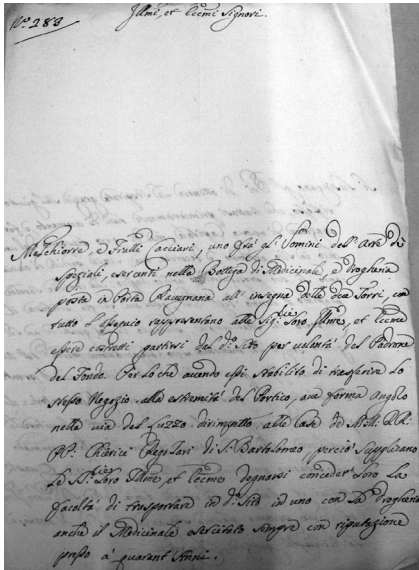 N.º 283
Illmi, et Eccmi Signori.
Melchiorre e Frũlli acciari, uno frà gl'Uomini dell'Arte di
Speziali, esercenti nella Bottega di Medicinale, e Drogheria
posta in Porta Ravegnana all'insegna delle due Torri, con
tutto l'Ossequio rappresentano alle Sig:rie Loro Illme, et Eccme
essere costretti partirsi dal d.º Sito per volontà del Padrone
del Fondo. Per lo che avendo essi stabilito di trasferire lo
stesso Negozio alla estremità del Portico, che forma angolo
nella via del Luzzo dirimpetto alle Case de M.M. RR:
PP: Chierici Regolari di S. Bartolomeo, perciò supplicano
Le SS:rie Loro Illme, et Eccme degnarsi conceder loro La
facoltà di trasportare in d.º Sito in uno con La Drogheria
anche il Medicinale esercitato sempre con riputazione
presso à quarant'Anni.